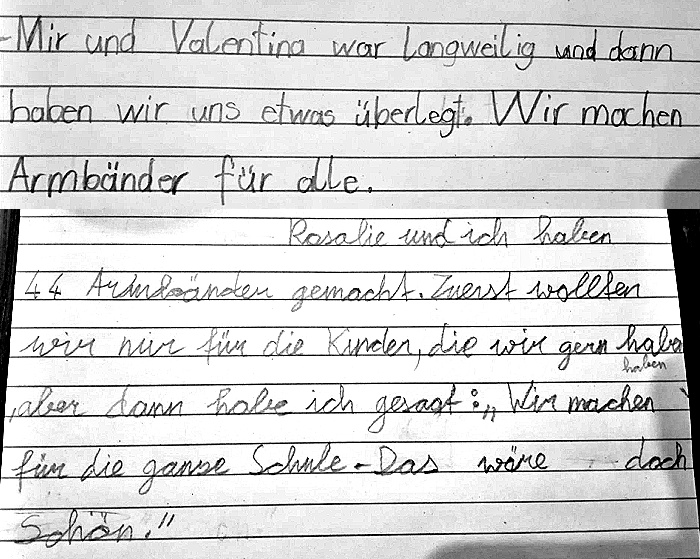 -Mir und Valentina war langweilig und dann
haben wir uns etwas überlegt. Wir machen
Armbänder für alle.
Rosalie und ich haben
44 Armbänder gemacht. Zuerst wollten
wir nur für die Kinder, die wir gern haba
haben
, aber dann habe ich gesagt: „Wir machen
für die ganze Schule. Das wäre doch
Schön."